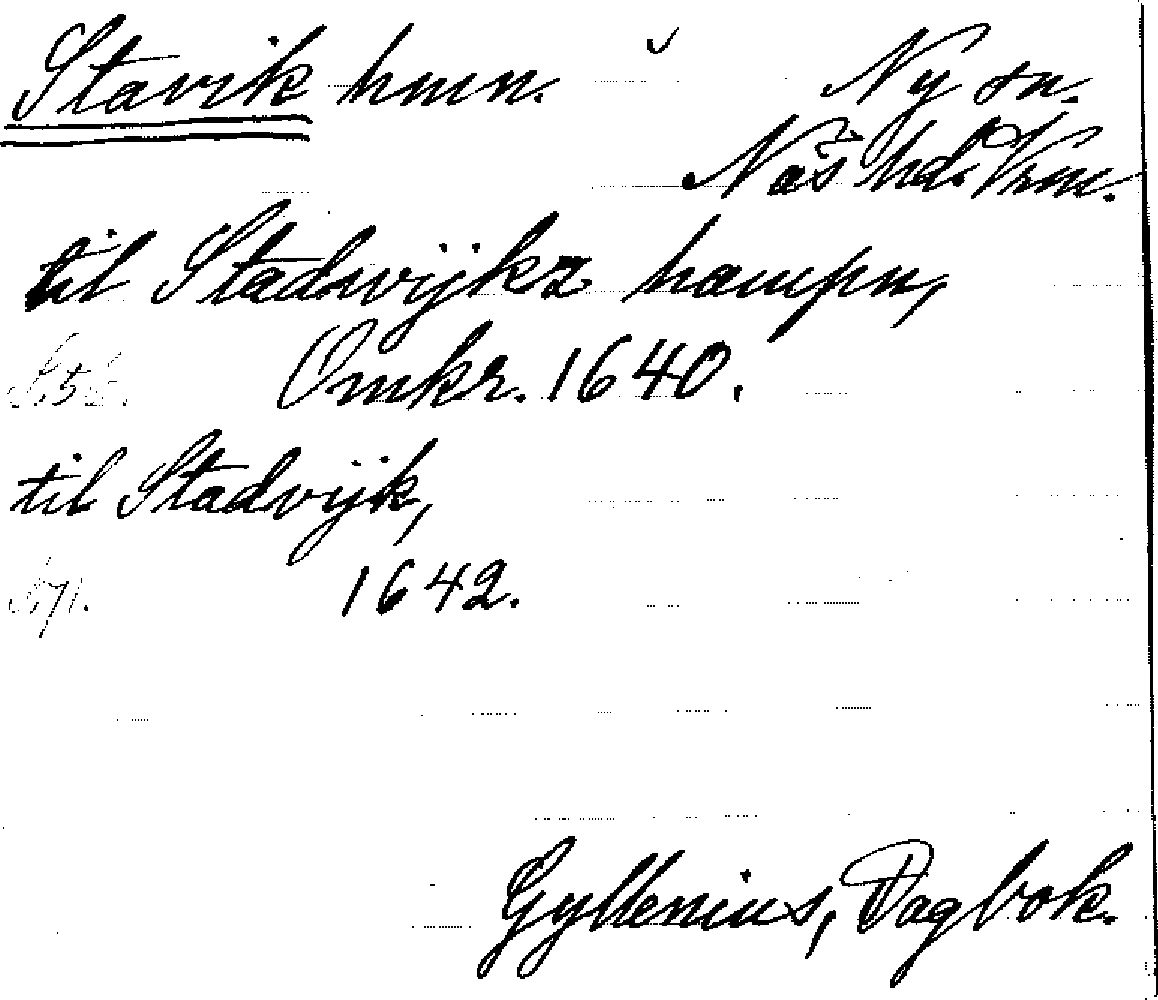 Stavik hmn. Ny sn.
Näs hd. Vrm.
til Stadwijkz hampn,
S. 5 Omkr. 1640.
til Stadvijk,
S. 71. 1642.
Gyllenius, Dagbok.